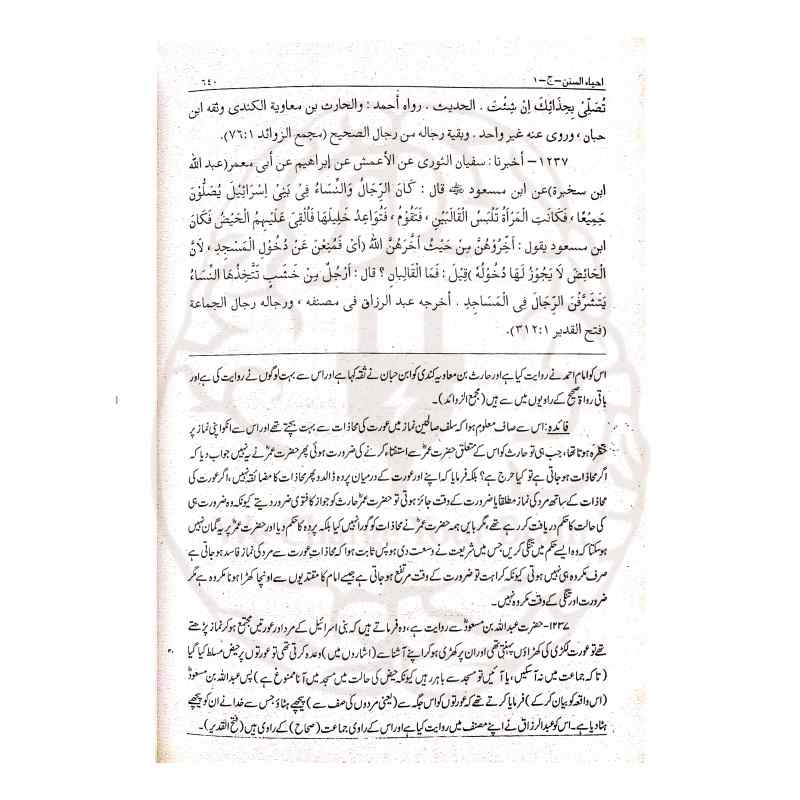 احیاء السنن - ج - ۱ ٦٤٠
تُصَلِّیْ بِحِذَائِكَ اِنْ شِئْتَ . الحدیث . رواه أحمد : والحارث بن معاویة الكندی وثقه ابن
حبان ، وروی عنه غیر واحد . وبقیة رجاله من رجال الصحیح (مجمع الزوائد ٧٦:١).
١٢٣٧ – أخبرنا : سفیان الثوری عن الأعمش عن إبراهیم عن أبی معمر(عبد الله
ابن سخبرة)عن ابن مسعود ﷺ قال : كَانَ الرِّجَالُ وَالنِّسَاءُ فِیْ بَنِیْ اِسْرَائِیْلَ یُصَلُّوْنَ
جَمِیْعًا ، فَكَانَتِ الْمَرْأَةُ تَلْبَسُ الْقَالَبَیْنِ ، فَتَقُوْمُ ، فَتُوَاعِدُ خَلِیْلَهَا فَأُلْقِیَ عَلَیْهِمُ الْحَیْضُ فَكَانَ
ابن مسعود یقول : أَخِّرُوْهُنَّ مِنْ حَیْثُ أَخَّرَهُنَّ اللهُ (أَیْ فَمُنِعْنَ عَنْ دُخُوْلِ الْمَسْجِدِ ، لِأَنَّ
الْحَائِضَ لَا یَجُوْزُ لَهَا دُخُوْلُهٗ )قِیْلَ : فَمَا الْقَالِبَانِ ؟ قال : أَرْجُلٌ مِنْ خَشَبٍ تَتَّخِذُهَا النِّسَاءُ
یَتَشَرَّفْنَ الرِّجَالَ فِی الْمَسَاجِدِ . أخرجه عبد الرزاق فی مصنفه ، ورجاله رجال الجماعة
(فتح القدیر ٣١٢:١).
اس کو امام احمد نے روایت کیا ہے اور حارث بن معاویہ کندی کو ابن حبان نے ثقہ کہا ہے اور اس سے بہت لوگوں نے روایت کی ہے اور
باقی رواۃ صحیح کے راویوں میں سے ہیں (مجمع الزوائد)۔
فائدہ: اس سے صاف معلوم ہوا کہ سلف صالحین نماز میں عورت کی محاذات سے بہت بچتے تھے اور اس سے انکو اپنی نماز پر
خطرہ ہوتا تھا، جب ہی تو حارث کو اس کے متعلق حضرت عمرؓ سے استفتاء کرنے کی ضرورت ہوئی پھر حضرت عمرؓ نے یہ نہیں جواب دیا کہ
اگر محاذات ہو جاتی ہے تو کیا حرج ہے؟ بلکہ فرمایا کہ اپنے اور عورت کے درمیان پردہ ڈالدو پھر محاذات کا مضائقہ نہیں، اگر عورت کی
محاذات کے ساتھ مرد کی نماز مطلقا یا ضرورت کے وقت جائز ہوتی تو حضرت عمرؓ حارث کو جواز کا فتوی ضرور دیتے کیونکہ وہ ضرورت ہی
کی حالت کا حکم دریافت کر رہے تھے، مگر بایں ہمہ حضرت عمرؓ نے محاذات کو گوارا نہیں کیا بلکہ پردہ کا حکم دیا اور حضرت عمرؓ پر یہ گمان نہیں
ہو سکتا کہ وہ ایسے حکم میں تنگی کریں جس میں شریعت نے وسعت دی ہو پس ثابت ہوا کہ محاذاتِ عورت سے مرد کی نماز فاسد ہو جاتی ہے
صرف مکروہ ہی نہیں ہوتی کیونکہ کراہت تو ضرورت کے وقت مرتفع ہو جاتی ہے جیسے امام کا مقتدیوں سے اونچا کھڑا ہونا مکروہ ہے مگر
ضرورت اور تنگی کے وقت مکروہ نہیں۔
۱۲۳۷- حضرت عبد اللہ بن مسعودؓ سے روایت ہے، وہ فرماتے ہیں کہ بنی اسرائیل کے مرد اور عورتیں مجتمع ہو کر نماز پڑھتے
تھے تو عورت لکڑی کی کھڑاؤں پہنتی تھی اور ان پر کھڑی ہو کر اپنے آشنا سے (اشاروں میں) وعدہ کرتی تھی تو عورتوں پر حیض مسلط کیا گیا
(تا کہ جماعت میں نہ آسکیں، یا آئیں تو مسجد سے باہر رہیں کیونکہ حیض کی حالت میں مسجد میں آنا ممنوع ہے) پس عبد اللہ بن مسعودؓ
(اس واقعہ کو بیان کر کے) فرمایا کرتے تھے کہ عورتوں کو اس جگہ سے (یعنی مردوں کی صف سے) پیچھے ہٹاؤ جس سے خدا نے ان کو پیچھے
ہٹا دیا ہے۔ اس کو عبد الرزاق نے اپنے مصنف میں روایت کیا ہے اور اس کے راوی جماعت (صحاح) کے راوی ہیں (فتح القدیر)۔